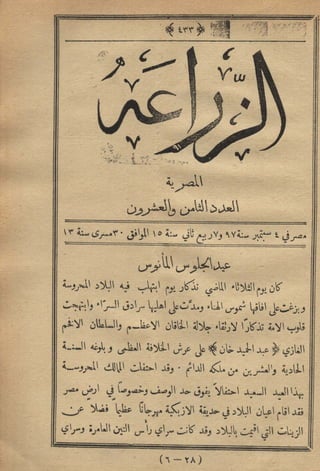 ﴿ ٤٣٣ ﴾
الزراعه
المصرية
العدد الثامن والعشرون
مصر في ٤ سبتمبر سنة ٩٧ و٧ ربيع ثاني سنة ١٥ الموافق ٣٠ مسرى سنة ١٣
عيد الجلوس المأنوس
كان يوم الثلاثاء الماضي تذكار يوم ابتهاب فيه البلاد المحروسة
وبزغت على افاقها شموس الهناء ومدّت على اهليها سرادق السراء وابتهجت
قلوب الامة تذكارًا لارتقاء جلالة الخاقان الاعظم والسلطان الانخم
الغازي ﴿ عبد الحميد خان ﴾ على عرش الخلافة العظمى وبلوغه السنة
الحادية والعشرين من ملكه الدائم . وقد احتفلت الممالك المحروسة
بهذا العيد السعيد احتفالاً يفوق حد الوصف وخصوصًا في ارض مصر
فقد اقام اعيان البلاد في حديقة الازبكية مهرجانًا عظيمًا فضلاً عن
الزينات التي اقيمت بالبلاد وقد كانت سراي رأس التين العامرة وسراي
(٢٨ – ٦)